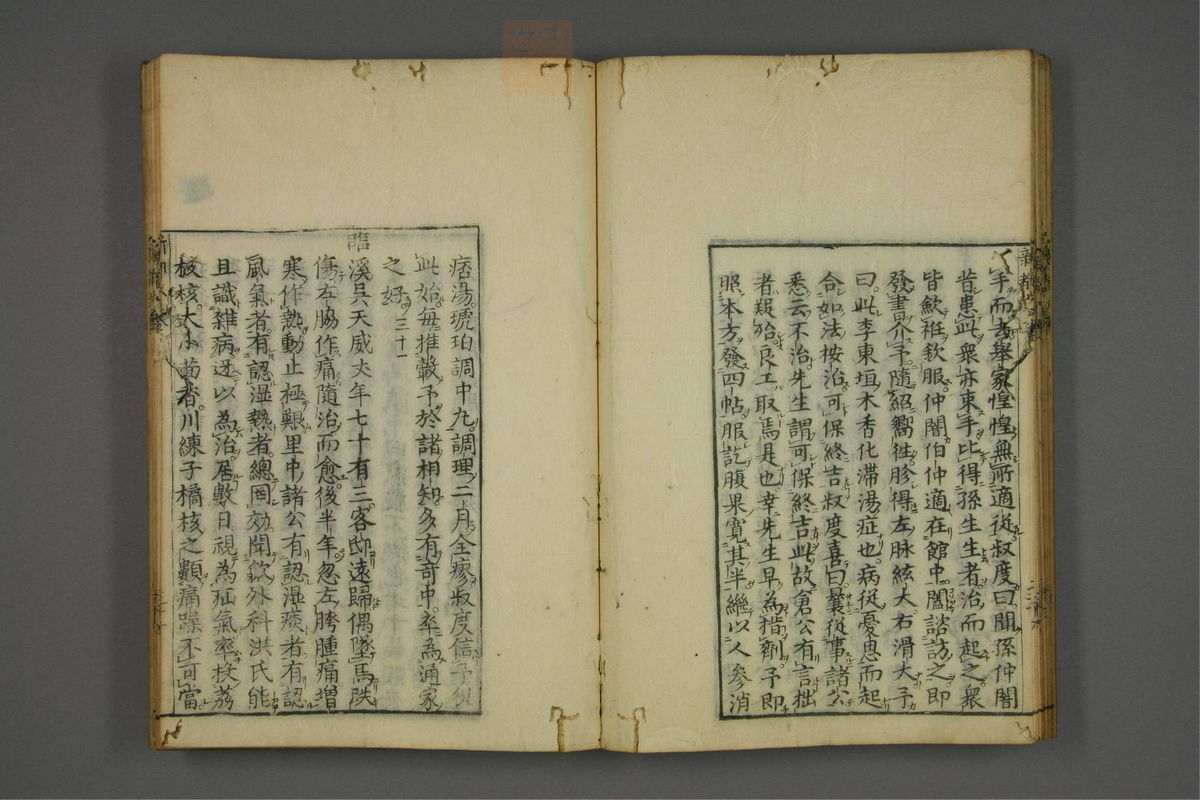 手而去舉家惶惶無所適從叔度曰聞孫仲闇
昔患此衆亦束手比得孫生生者治而起之衆
皆歛袵欽服仲闇伯仲適在館中闔談訪之即
發書介予隨紹嚮徃胗得左脉絃大右滑大予
曰此李東垣木香化滯湯症也病從憂思而起
合如法按治可保終吉叔度喜曰曩從事諸公
悉云不治先生謂可保終吉此故倉公有言拙
者疑殆良工取焉是也幸先生早為措劑予即
照本方發四帖服訖腹果寛其半繼以人參消
痞湯琥珀調中丸調理二月全瘳叔度信予
此始毎推轂予於諸相知多有奇中率為通家
之好三十一
臨溪吳天威丈年七十有三客邸遠歸偶墜馬跌
傷左脇作痛隨治而愈後半年忽左胯腫痛增
寒作熱動止極艱里中諸公有認濕痰者有認
風氣者有認濕熱者總罔効聞歙外科洪氏能
且識雜病迓以為治居數日視為疝氣率投茘
枝核大小茴香川練子橘核之類痛躁不可當